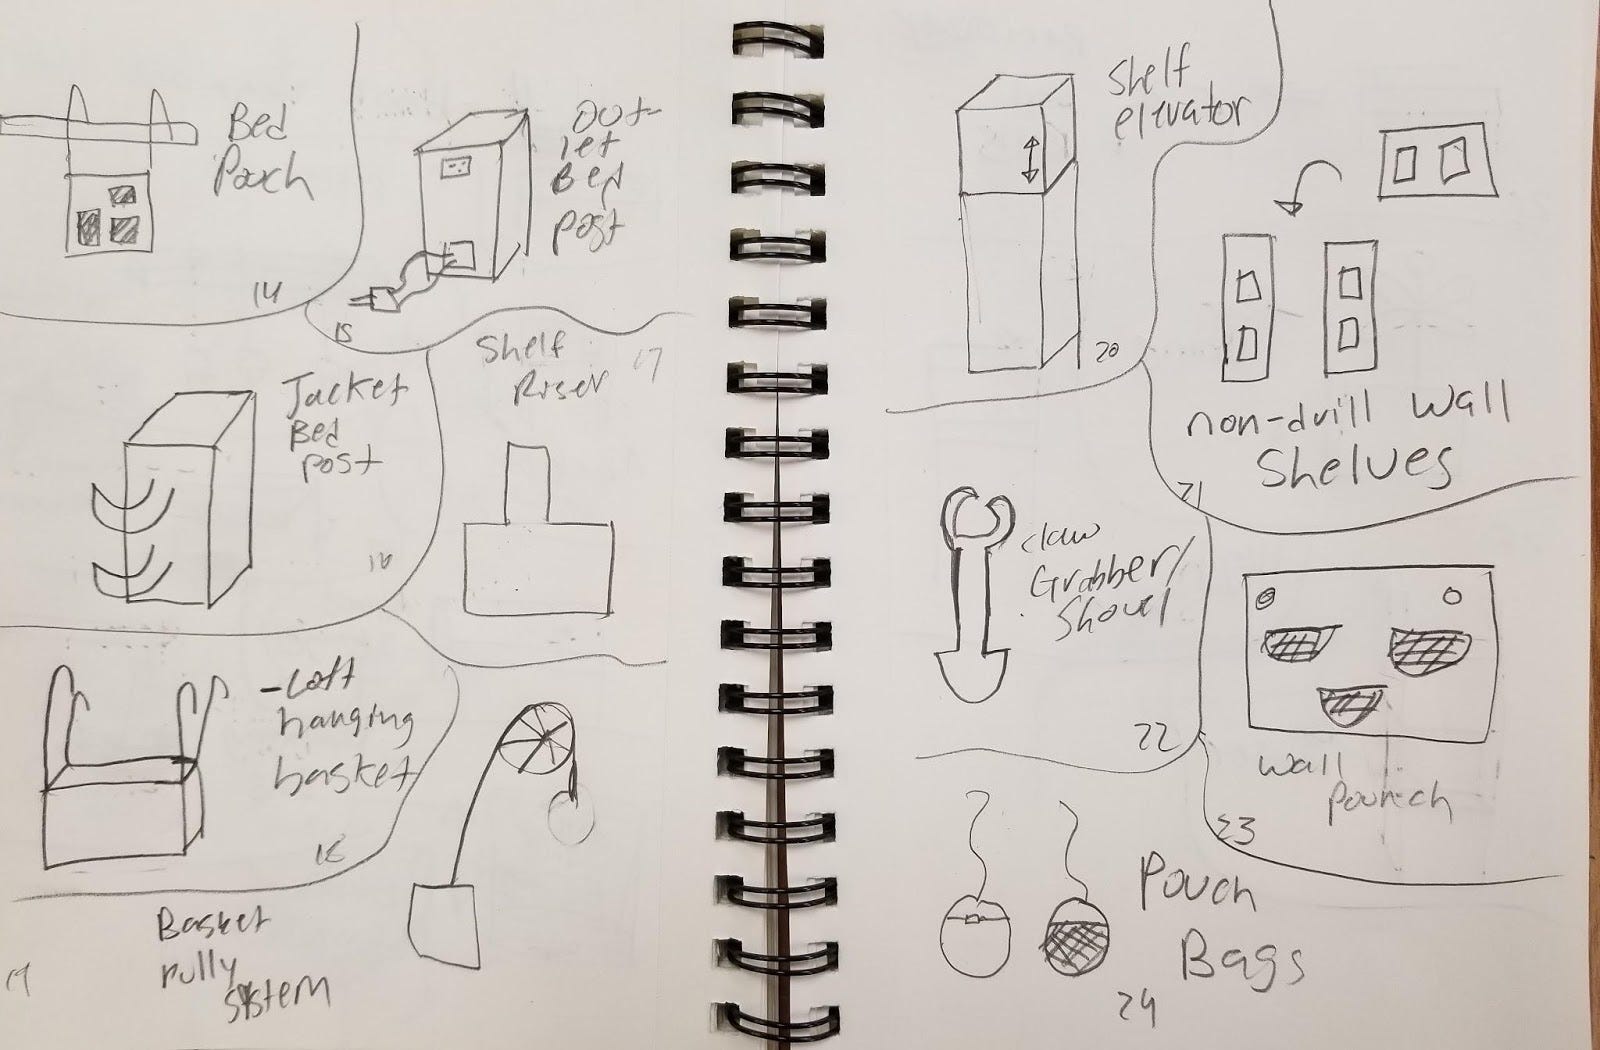 Bed
Pouch
14
Out-
let
Bed
post
15
Jacket
Bed
post
16
Shelf
Riser
17
-Loft
hanging
basket
18
Basket
pully
system
19
Shelf
elevator
20
non-drill wall
Shelves
21
claw
Grabber/
Shovel
22
wall
Pounch
23
Pouch
Bags
24